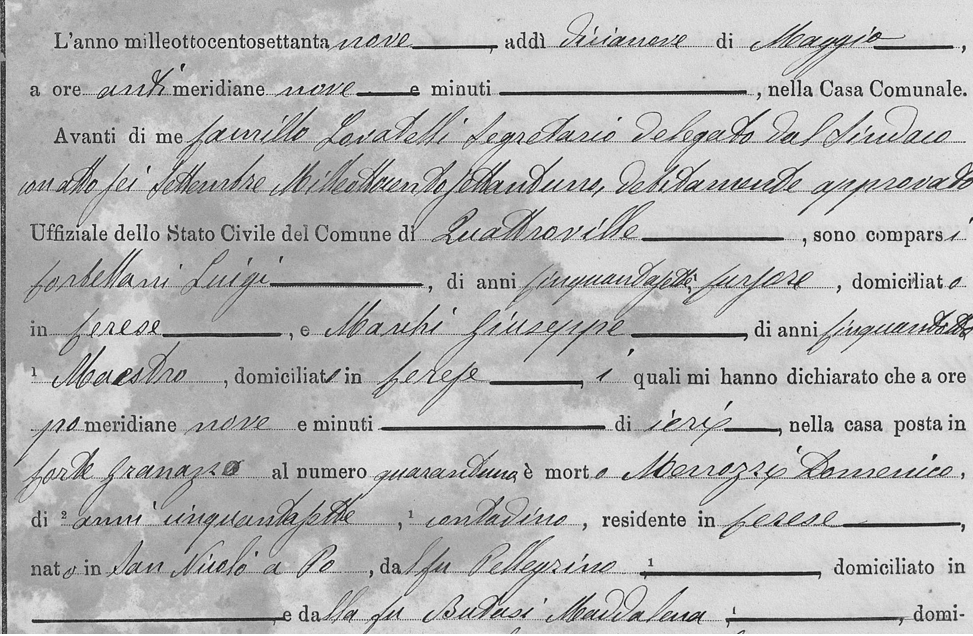 L'anno milleottocentosettanta nove, addì dicianove di Maggio,
a ore anti meridiane nove e minuti, nella Casa Comunale.
Avanti di me Camillo Lovatelli Segretario delegato dal Sindaco
con atto sei Settembre Milleottocentosettantuno, debitamente approvato
Uffiziale dello Stato Civile del Comune di Quattroville, sono comparsi
Luigi, di anni cinquantasette, domiciliato
in Cerese, e Marchi Giuseppe, di anni
1 Maestro, domiciliati in Cerese, i quali mi hanno dichiarato che a ore
po meridiane nove e minuti di ieri, nella casa posta in
Corte al numero quarantuno è morto Merrozzi Domenico,
di 2 anni cinquantasette, 1 contadino, residente in Cerese,
nato in San Nicolò a Po, dal fu Pellegrino 1, domiciliato in
, e dalla fu Maddalena 1, domi-